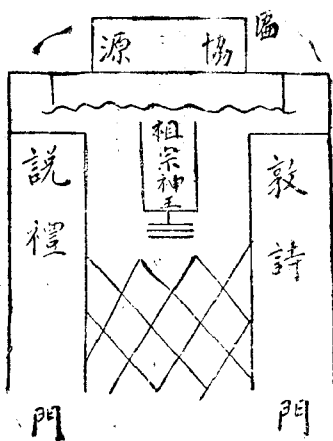 匾
協源
祖宗神主
敦詩
說禮
門
門